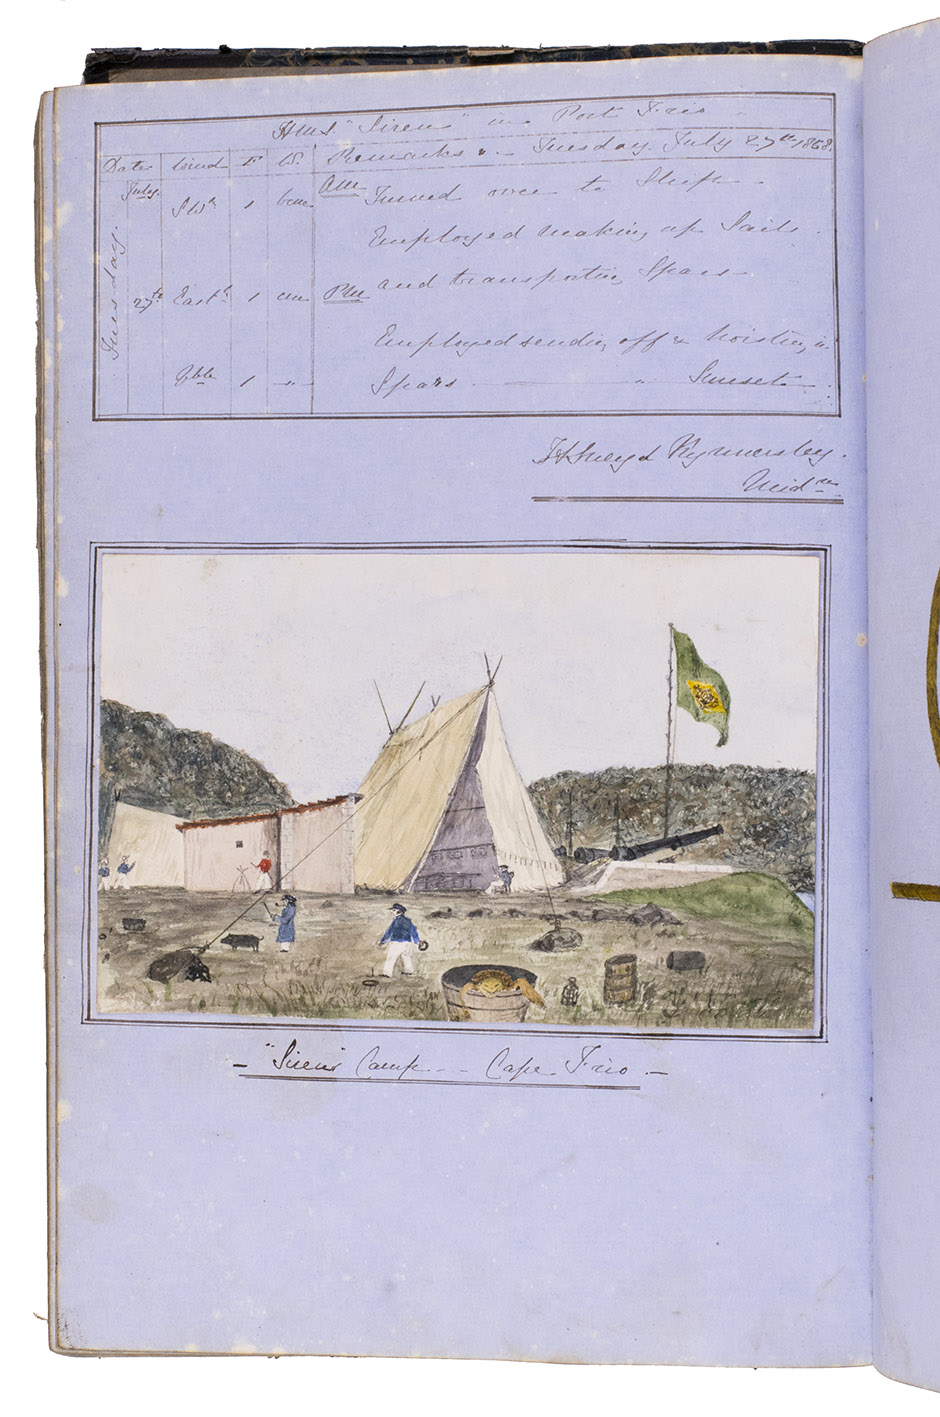 HMS "Siren" in Port Frio
Date Wind F. W. Remarks Tuesday July 27th 1868.
July. SWd 1 bcm AM Turned over to Ship
Employed making up Sails.
Tuesday. 27th Eastd 1 cm PM and transporting Spars
Employed sending off & hoisting in
Vble 1 " Spars " Sunset
Sneyd Kynnersley.
Midn
"Siren's" Camp - Cape Frio -